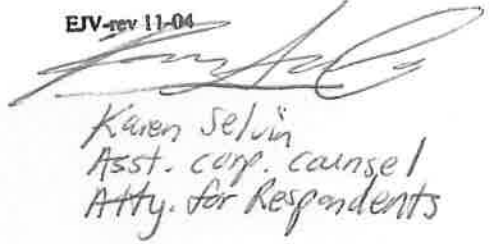 EJV-rev 11-04
Karen Selvin
Asst. corp. counsel
Atty. for Respondents